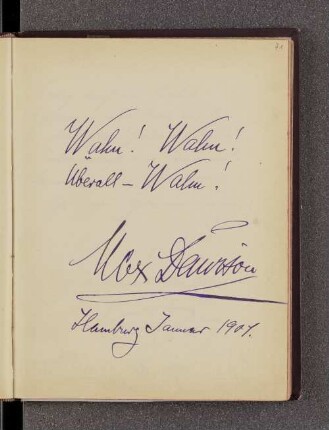 71
Wahn! Wahn!
Überall – Wahn!
Max Dawison
Hamburg Januar 1901.